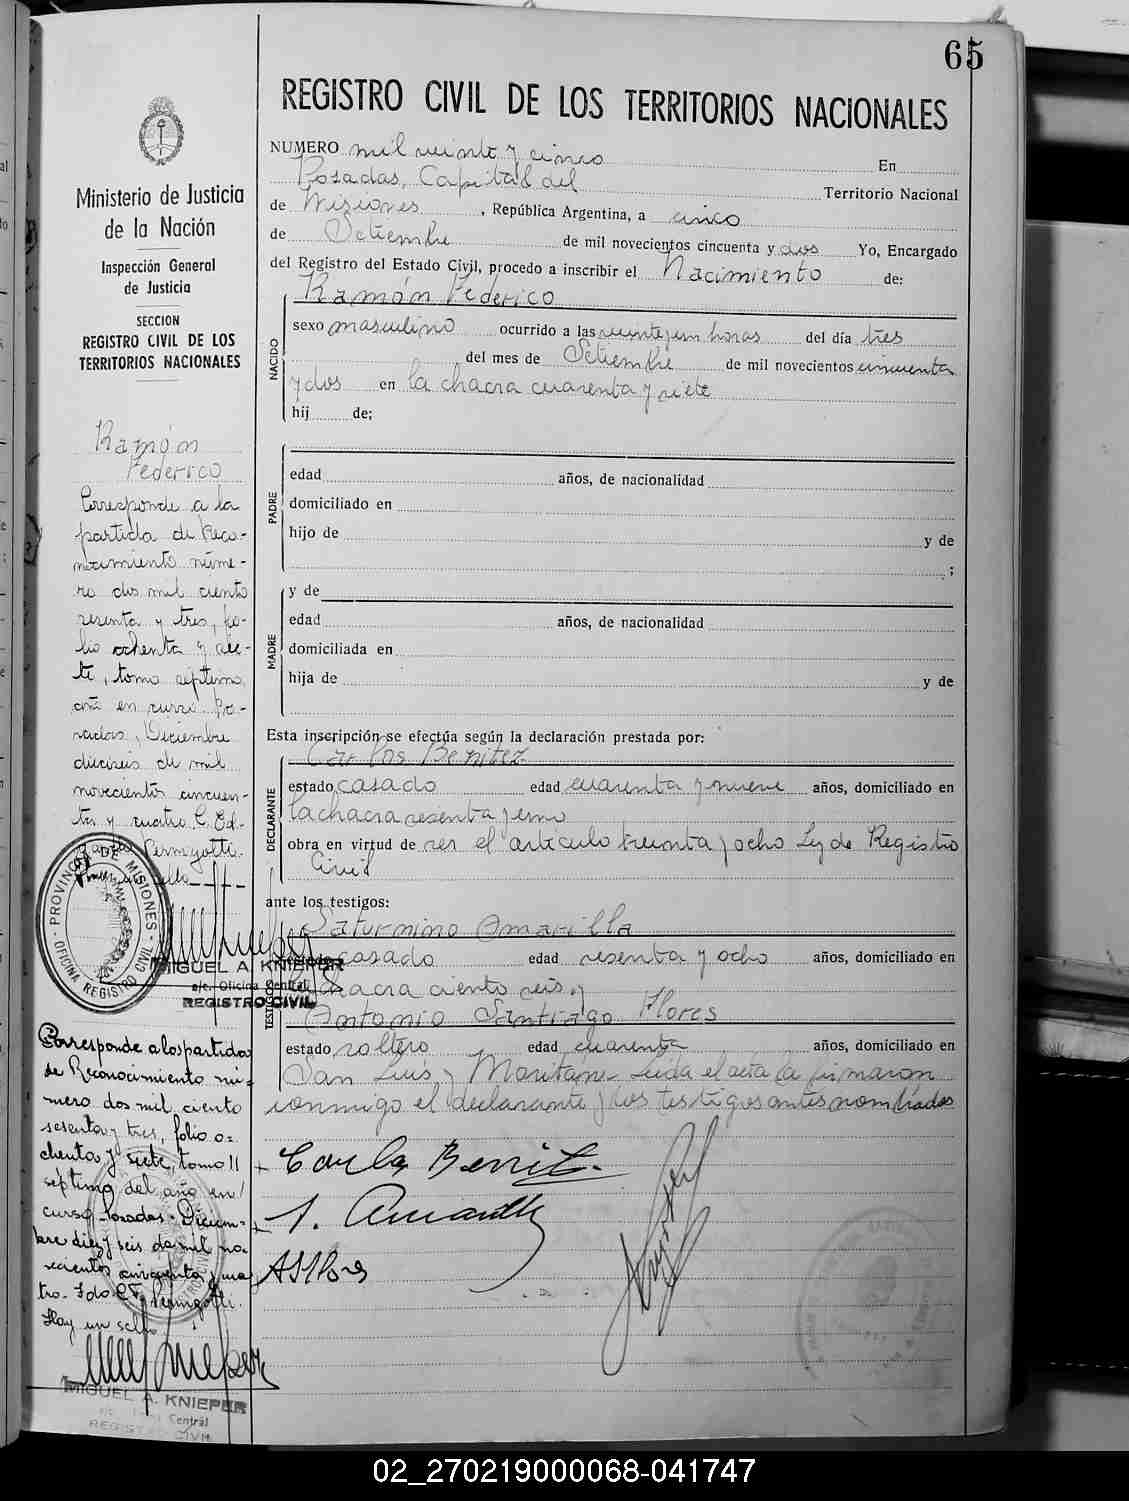 65
REGISTRO CIVIL DE LOS TERRITORIOS NACIONALES
NUMERO mil veinte y cinco En
Posadas, Capital del Territorio Nacional
de Misiones, República Argentina, a cinco
de Setiembre de mil novecientos cincuenta y dos Yo, Encargado
del Registro del Estado Civil, procedo a inscribir el Nacimiento de:
NACIDO
Ramón Federico
sexo masculino ocurrido a las veinte y un horas del día tres
del mes de Setiembre de mil novecientos cincuenta
y dos en la chacra cuarenta y siete
hij de;
PADRE
edad años, de nacionalidad
domiciliado en
hijo de y de
;
MADRE
y de
edad años, de nacionalidad
domiciliada en
hija de y de
Esta inscripción se efectúa según la declaración prestada por:
DECLARANTE
Carlos Benitez
estado casado edad cuarenta y nueve años, domiciliado en
la chacra sesenta y uno
obra en virtud de ser el artículo treinta y ocho Ley de Registro
Civil
ante los testigos:
TESTIGOS
Saturnino Amarilla
casado edad sesenta y ocho años, domiciliado en
chacra ciento seis y
Antonio Santiago Flores
estado soltero edad cuarenta años, domiciliado en
San Luis y Moritan leida el acta la firmaron
conmigo el declarante y los testigos antes nombrados
Carlos Benit
S. Amarilla
ASFlores
Ministerio de Justicia
de la Nación
Inspección General
de Justicia
SECCION
REGISTRO CIVIL DE LOS
TERRITORIOS NACIONALES
Ramón
Federico
Corresponde a la
partida de Reco-
nocimiento núme-
ro dos mil ciento
sesenta y tres, fo-
lio ochenta y sie-
te, tomo séptimo,
año en curso. Po-
sadas, Diciembre
dieciseis de mil
novecientos cincuen-
ta y cuatro. C. Ed-
Permigotti.
PROVINCIA DE MISIONES
OFICINA REGISTRO CIVIL
MIGUEL A. KNIEPER
a/c. Oficina Central
REGISTRO CIVIL
Corresponde a los partidas
de Reconocimiento nú-
mero dos mil ciento
sesenta y tres, folio o-
chenta y siete, tomo
séptimo del año en
curso. Posadas - Diciem-
bre diez y seis de mil no-
vecientos cincuenta y cua-
tro. Fdo C. E. Permigotti.
Hay un sello
MIGUEL A. KNIEPER
Central
REGISTRO CIVIL
02_270219000068-041747